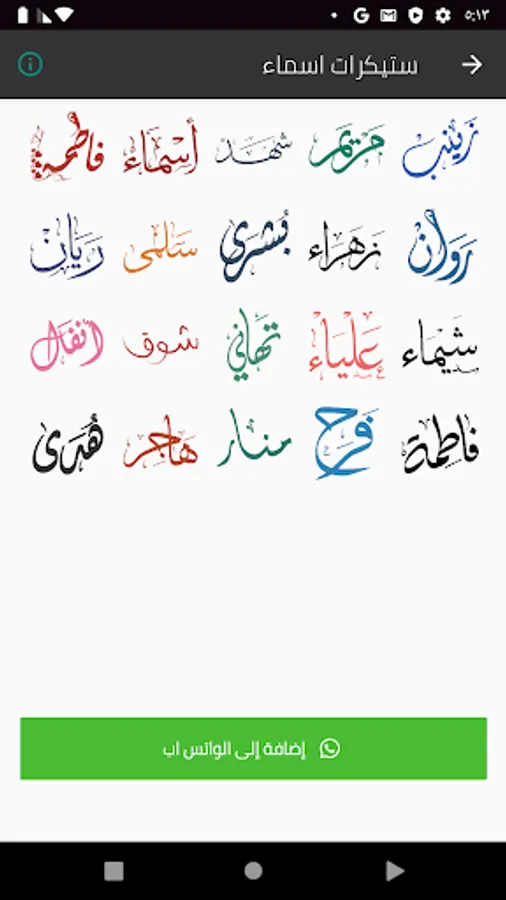 ٥:١٣
ستيكرات اسماء
زينب مريم شهد أسماء فاطمة
روان زهراء بشرى سالمى ريان
شيماء علياء تهاني شوق أنفال
فاطمة فرح منار هاجر هدى
إضافة إلى الواتس اب